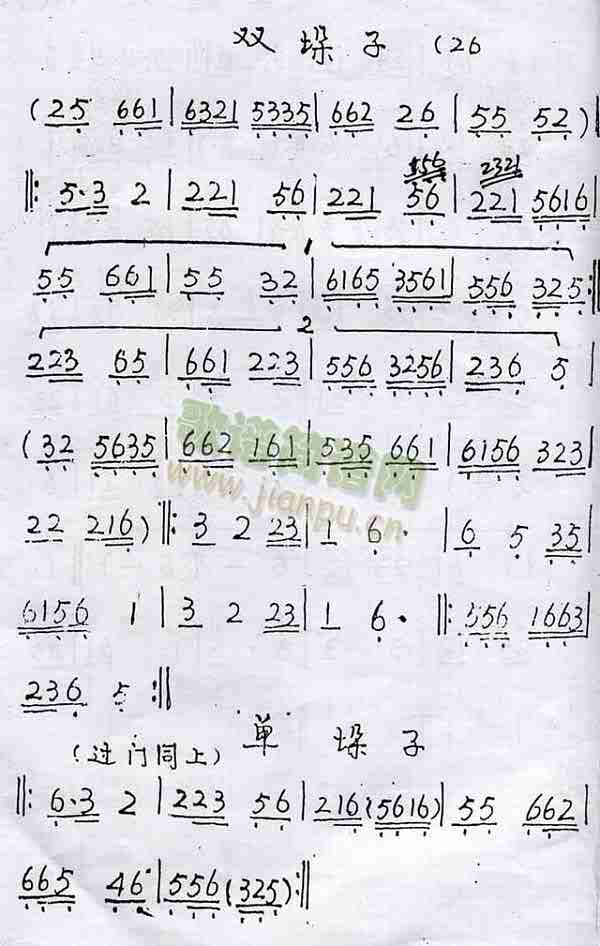 双垛子 (26
(25 661|6321 5335|662 26|55 52)|
556 2321
‖:5·3 2|221 56|221 56|221 5616|
1
55 661|55 32|6165 3561|556 325:‖
2
223 65|661 223|556 3256|236 5|
(32 5635|662 161|535 661|6156 323|
22 216)‖:3 2 23|1 6·|6 5 35|
6156 1|3 2 23|1 6·‖:556 1663|
236 5:‖
(过门同上) 单垛子
‖:6·3 2|223 56|216(5616)|55 662|
665 46|556(325):‖
歌谱简谱网
www.jianpu.cn